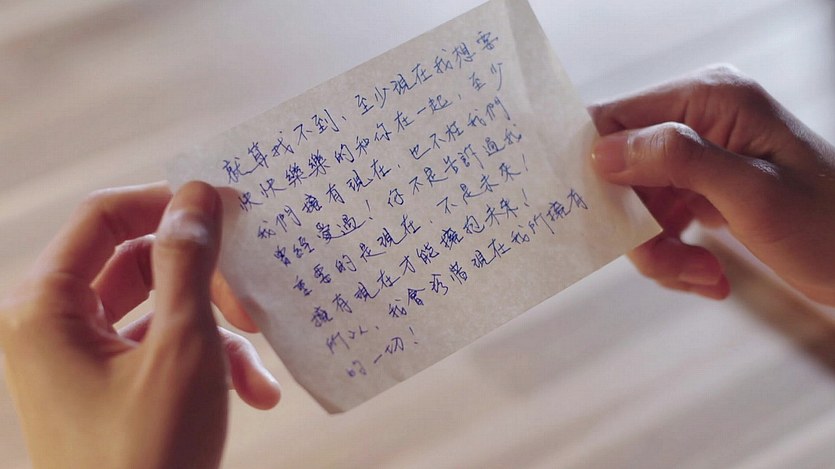 就算找不到，至少現在我想要
快快樂樂的和你在一起，至少
我們擁有現在，也不枉我們
曾經愛過！你不是告訴過我
重要的是現在，不是未來！
擁有現在才能擁抱未來！
所以，我會珍惜現在我所擁有
的一切！